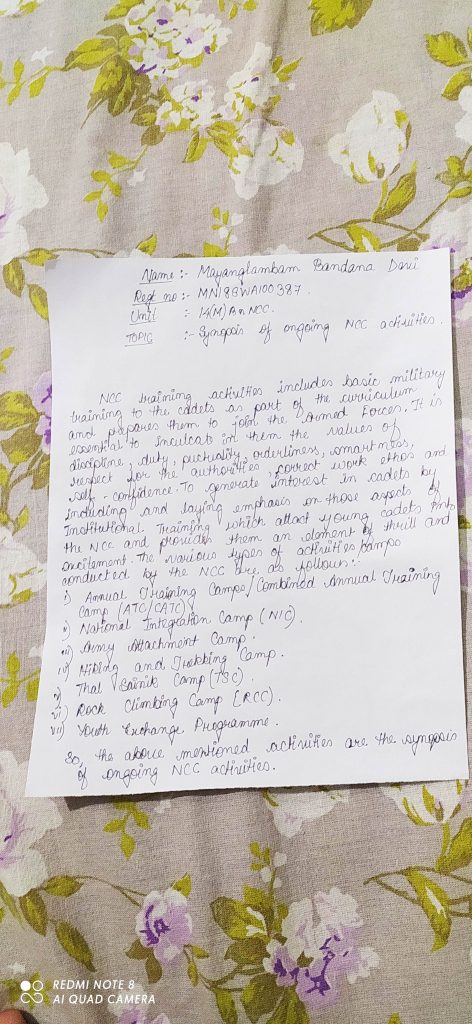 Name :- Mayanglambam Bandana Devi
Regt no :- MN18SWA100387.
Unit : 14(M)Bn NCC.
TOPIC :- Synopsis of ongoing NCC activities.
NCC training activities includes basic military
training to the cadets as part of the curriculum
and prepares them to join the Armed Forces. It is
essential to inculcate in them the values of
discipline, duty, puctuality, orderliness, smartness,
respect for the authorities, correct work ethos and
self-confidence. To generate interest in cadets by
including and laying emphasis on those aspects of
Institutional Training which attact young cadets into
the NCC and provides them an element of thrill and
excitement. The various types of activities/camps
conducted by the NCC are as follows:-
i) Annual Training Camps/Combined Annual Training
Camp (ATC/CATC).
ii) National Integration Camp (NIC).
iii) Army Attachment Camp.
iv) Hiking and Trekking Camp.
v) Thal Sainik Camp (TSC).
vi) Rock Climbing Camp (RCC).
vii) Youth Exchange Programme.
So, the above mentioned activities are the synopsis
of ongoing NCC activities.
REDMI NOTE 8
AI QUAD CAMERA